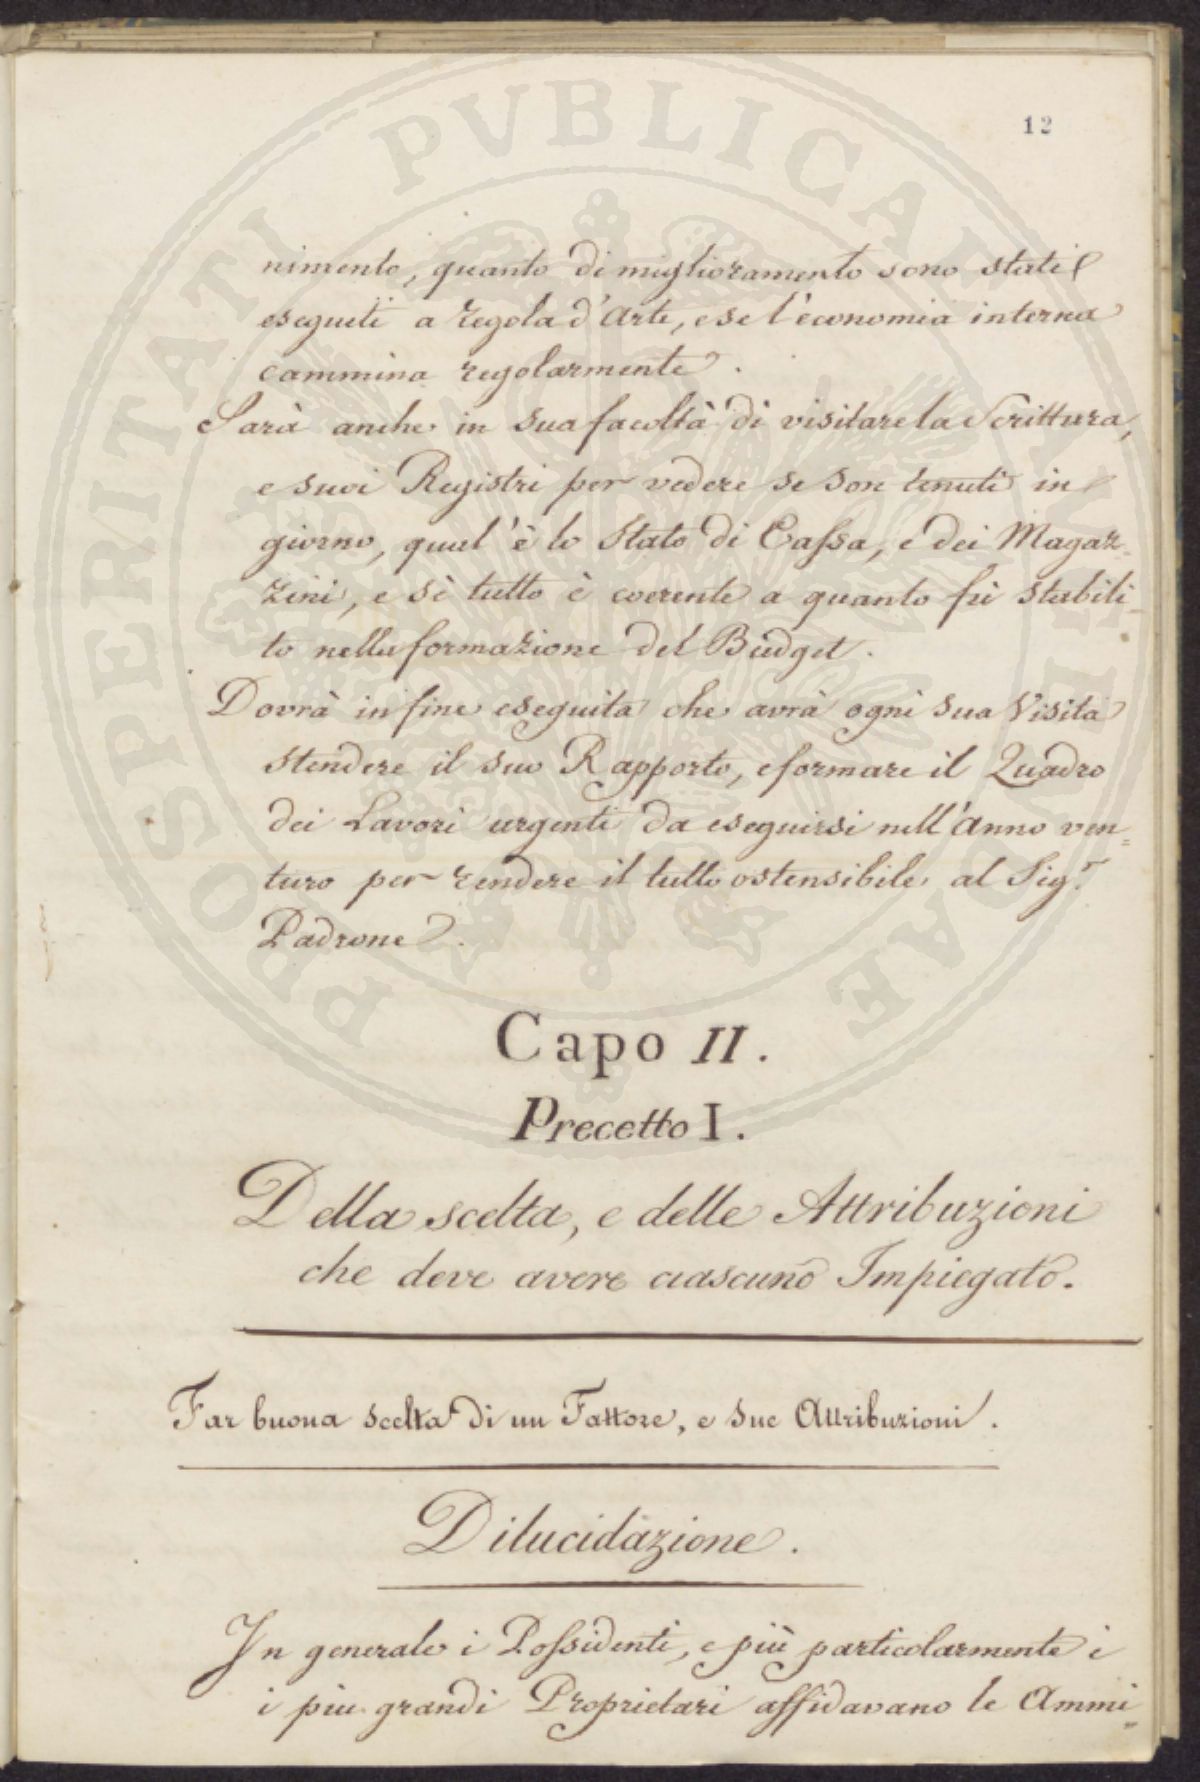 PROSPERITATI PVBLICAE AVGENDAE
12
nimento, quanto di miglioramento sono stati
eseguiti a regola d'Arte, e se l'economia interna
cammina regolarmente.
Sarà anche in sua facoltà di visitare la Scrittura,
e suoi Registri per vedere se son tenuti in
giorno, qual'è lo Stato di Cassa, e dei Magaz=
zini, e sè tutto è coerente a quanto fù stabili=
to nella formazione del Budget.
Dovrà infine eseguita che avrà ogni sua Visita
stendere il suo Rapporto, e formare il Quadro
dei Lavori urgenti da eseguirsi nell'Anno ven=
turo per rendere il tutto ostensibile al Sig.r
Padrone.
Capo II.
Precetto I.
Della scelta, e delle Attribuzioni
che deve avere ciascuno Impiegato.
Far buona scelta di un Fattore, e sue Attribuzioni.
Dilucidazione.
In generale i Possidenti, e più particolarmente i
i piu grandi Proprietari affidavano le Ammi=